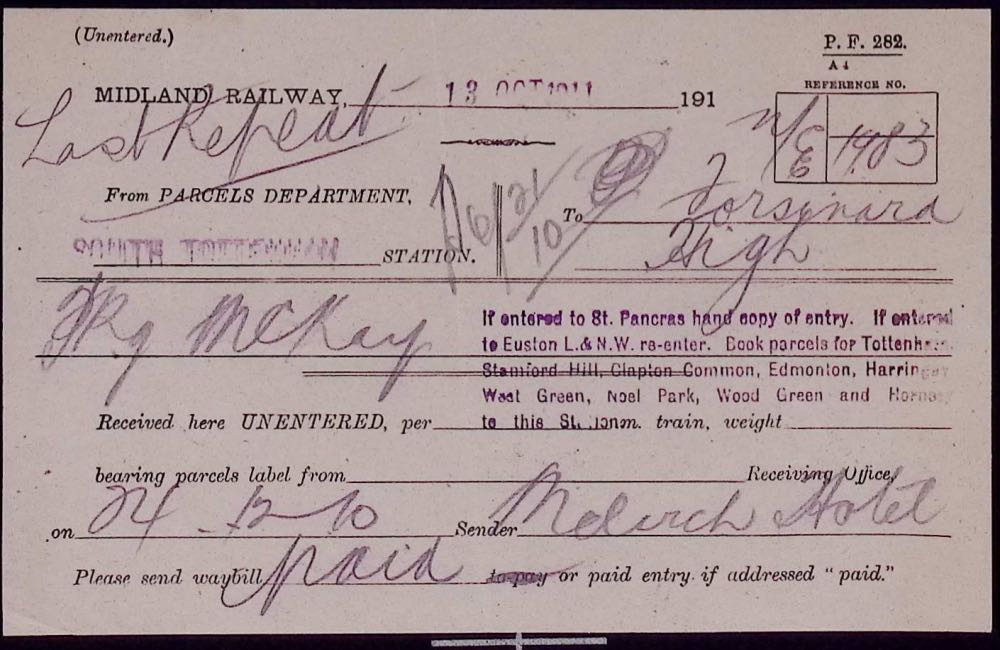 (Unentered.)
P. F. 282.
A 4
REFERENCE NO.
MIDLAND RAILWAY, 13 OCT 1911 191
Last Repeat
N/E 1983
From PARCELS DEPARTMENT,
6/21/10
To Forsinard
High
SOUTH TOTTENHAM STATION.
Pkg McKay
If entered to St. Pancras hand copy of entry. If entered
to Euston L.& N.W. re-enter. Book parcels for Tottenham
Stamford Hill, Clapton Common, Edmonton, Harringay
West Green, Noel Park, Wood Green and Hornsey
to this St.
Received here UNENTERED, per m. train, weight
bearing parcels label from Receiving Office,
on 24-12-10 Sender Hotel
Please send waybill paid to pay or paid entry if addressed "paid."